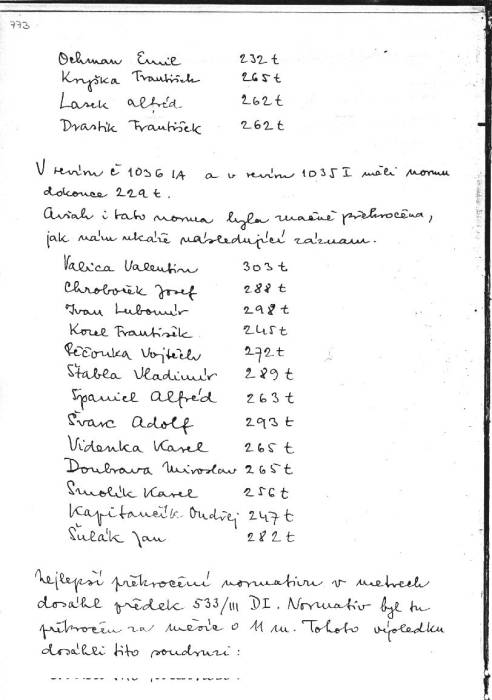 773
Ochman Emil 232 t
Kryška František 265 t
Lasek Alfréd 262 t
Drastik František 262 t
V revíru č 1036 IA a v revíru 1035 I měli normu
dokonce 229 t.
Avšak i tato norma byla značně překročena,
jak nám ukáže následující záznam.
Valica Valentin 303 t
Chroboček Josef 288 t
Ivan Lubomír 298 t
Korel František 245 t
Pečonka Vojtěch 272 t
Stabla Vladimír 289 t
Španiel Alfréd 263 t
Švarc Adolf 293 t
Videnka Karel 265 t
Doubrava Miroslav 265 t
Smolík Karel 256 t
Kapitančik Ondřej 247 t
Šulák Jan 282 t
Nejlepší překročení normativu v metrech
dosáhl předek 533/III DI. Normativ byl tu
překročen za měsíc o 11 m. Tohoto výsledku
dosáhli tito soudruzi: